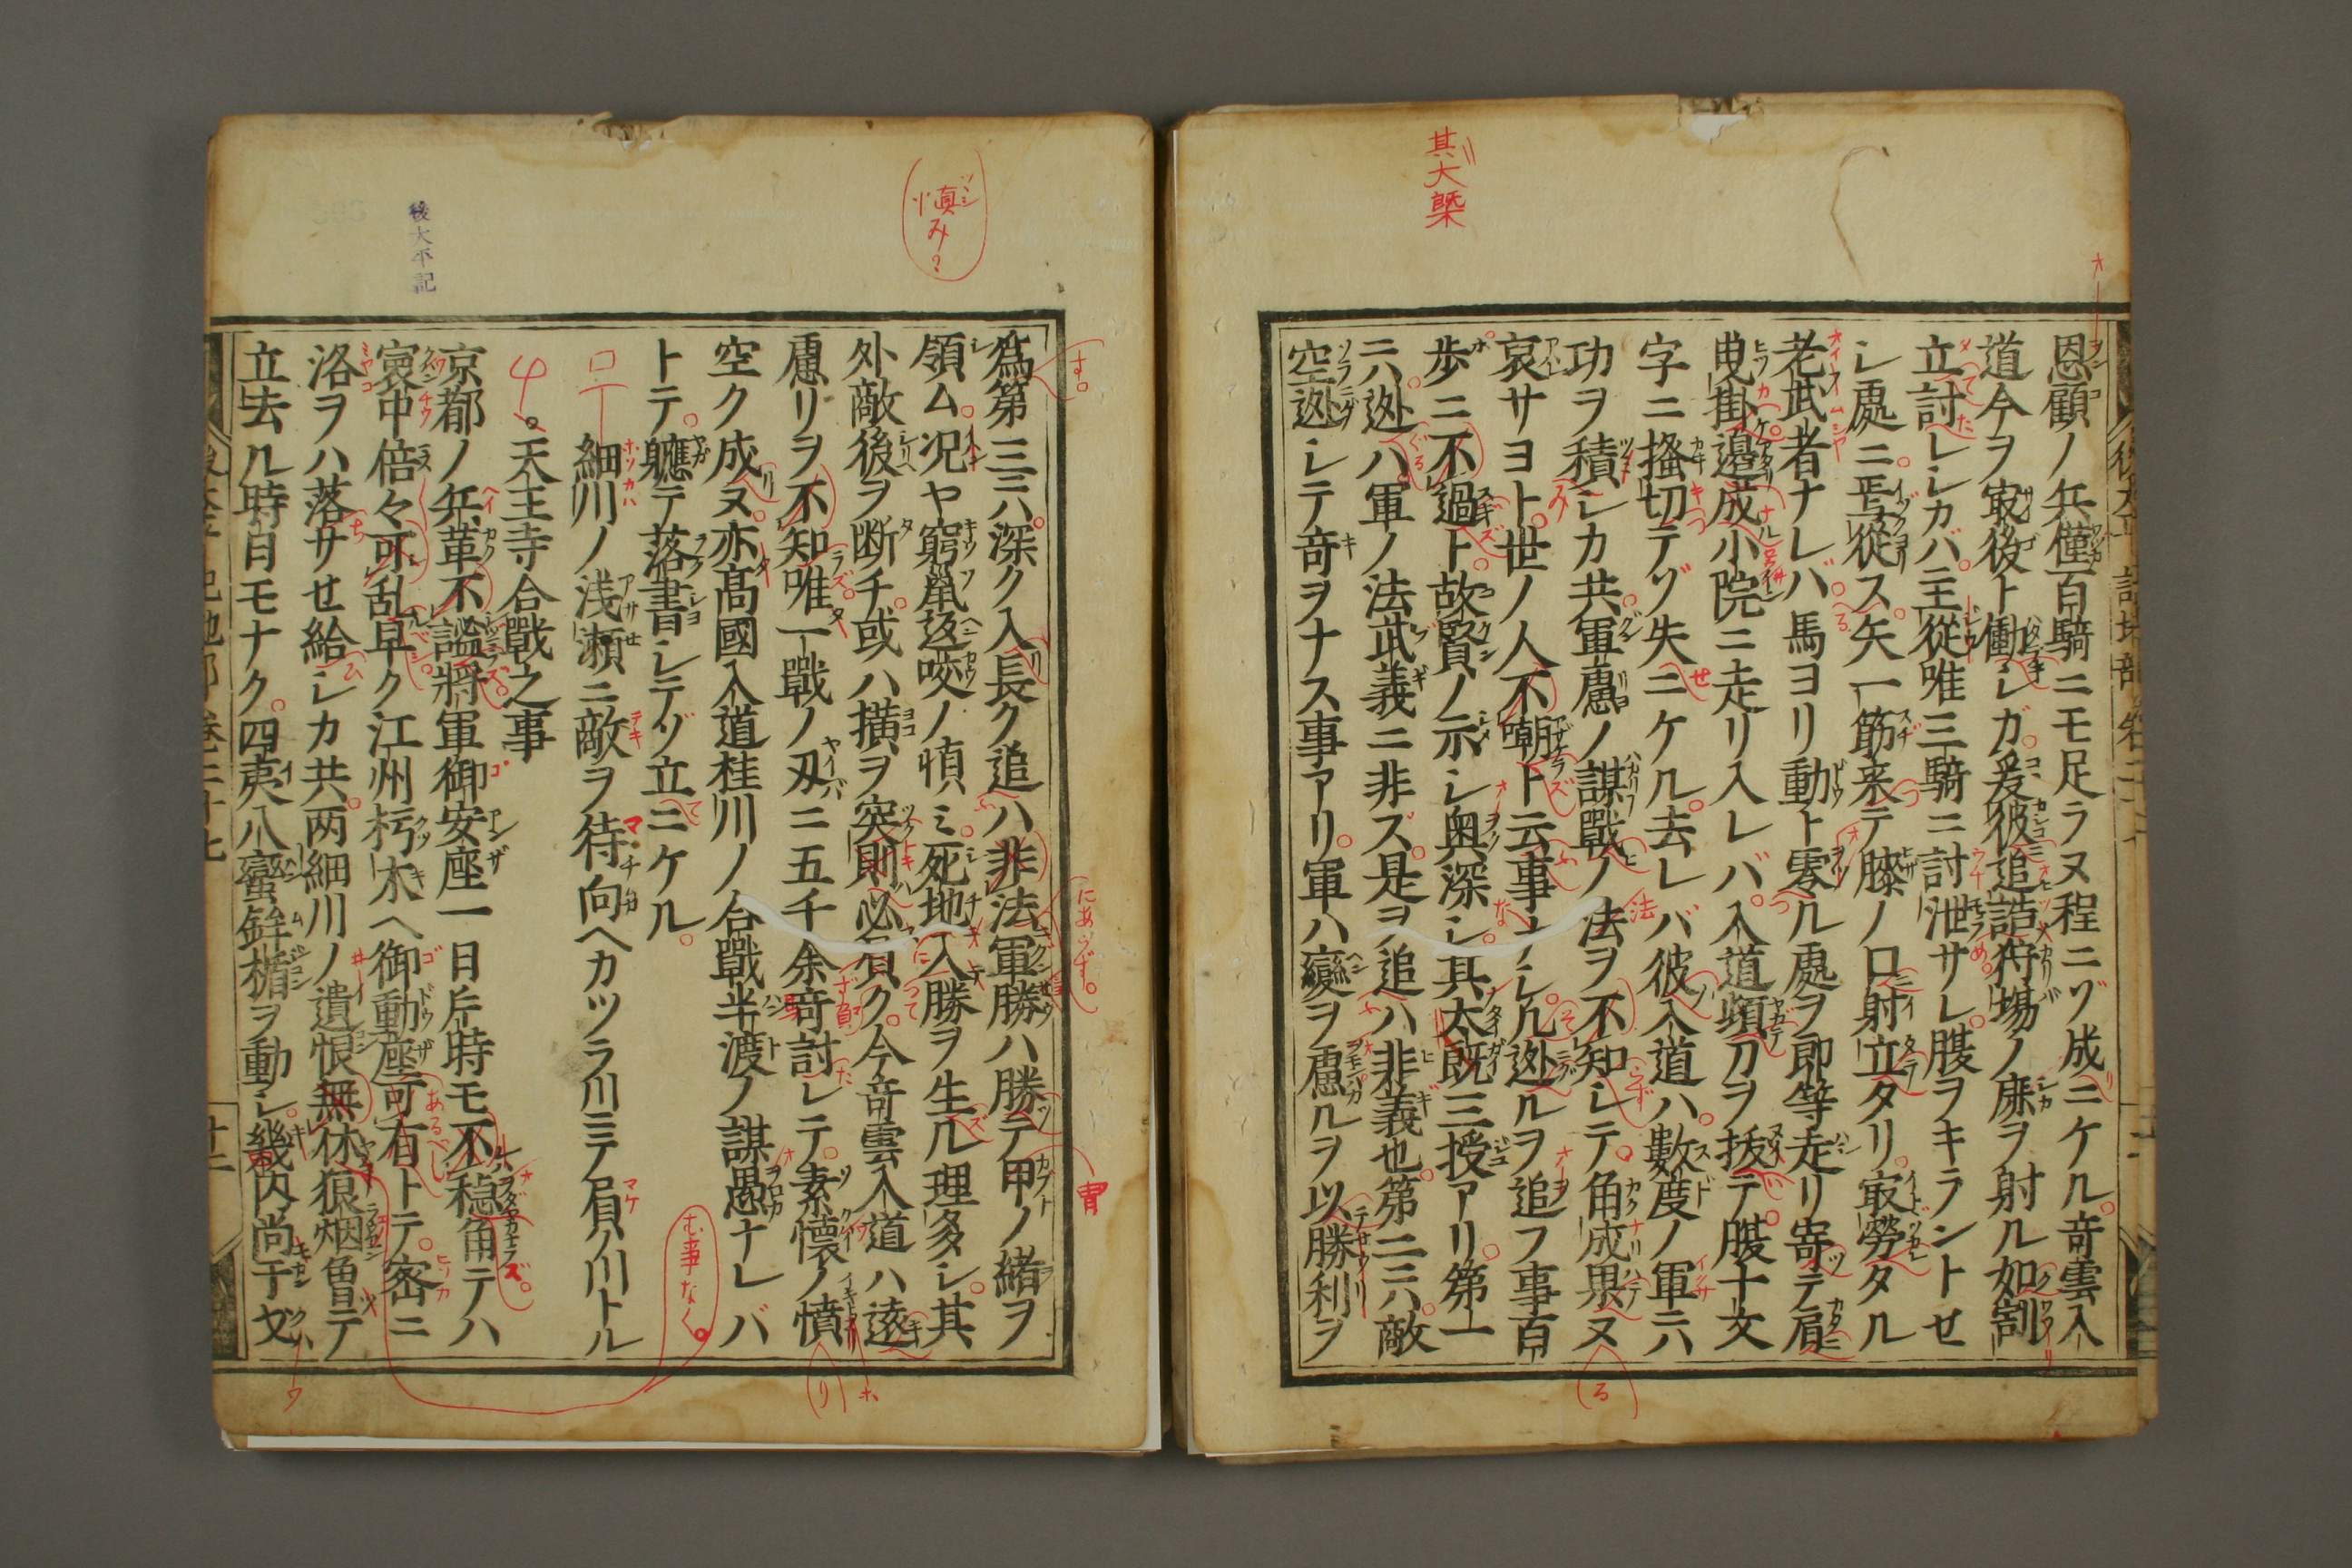 其大槩
恩顧ノ兵僅百騎ニモ足ラヌ程ニゾ成ニケル。奇雲入
道今ヲ㝡後ト働シガ。爰彼追詰狩場ノ麻ヲ射ル如割
立討レシカバ。主從唯三騎ニ討泄サレ。腹ヲキラントせ
シ處ニ焉從ス矢一筋来テ膝ノ口射立タリ。㝡勞タル
老武者ナレバ馬ヨリ動ト零ル處ヲ即等走リ寄テ肩
曵掛邉成小院ニ走リ入レバ。入道頓刀ヲ抜テ腹十文
字ニ搔切テゾ失ニケル。去レバ彼入道ハ。數度ノ軍ニハ
功ヲ積シカ共。軍慮ノ謀戰ノ法ヲ不知シテ。角成果ヌ
哀サヨト。世ノ人不嘲ト云事ナシ。凢迯ルヲ追フ事百
歩ニ不過ト。故賢ノ示シ奥深シ。其大既三授アリ。第一
ニハ迯ハ軍ノ法武義ニ非ズ。是ヲ追ハ非義也。第二ニハ敵
空迯シテ奇ヲナス事アリ。軍ハ變ヲ慮ルヲ以勝利ヲ
慎み?
後太平記
為第三ニハ深ク入長ク追ハ非法軍勝ハ勝テ甲ノ緒ヲ
領ム。况ヤ窮鼠返咬ノ慎ミ。死地入勝ヲ生ル理多シ。其
外敵後ヲ断チ。或ハ横ヲ突則必負ク。今奇雲入道ハ遠
慮リヲ不知唯一戰ノ刄ニ五千余奇討レテ。素懐ノ憤
空ク成ヌ。亦高國入道桂川ノ合戰半渡ノ謀愚ナレバ
トテ。軈テ落書シテゾ立ニケル。
細川ノ浅瀬ニ敵ヲ待向ヘカツラ川ミテ負ノ川トル
天王寺合戰之事
京都ノ兵革不謐將軍御安座一日片時モ不穏角テハ
寰中倍々可乱早ク江州朽木ヘ御動座可有トテ。密ニ
洛ヲハ落サせ給シカ共。両細川ノ遺恨無休狼烟曽テ
立去ル時日モナク。四夷八蠻鉾楯ヲ動シ。幾内尚干戈